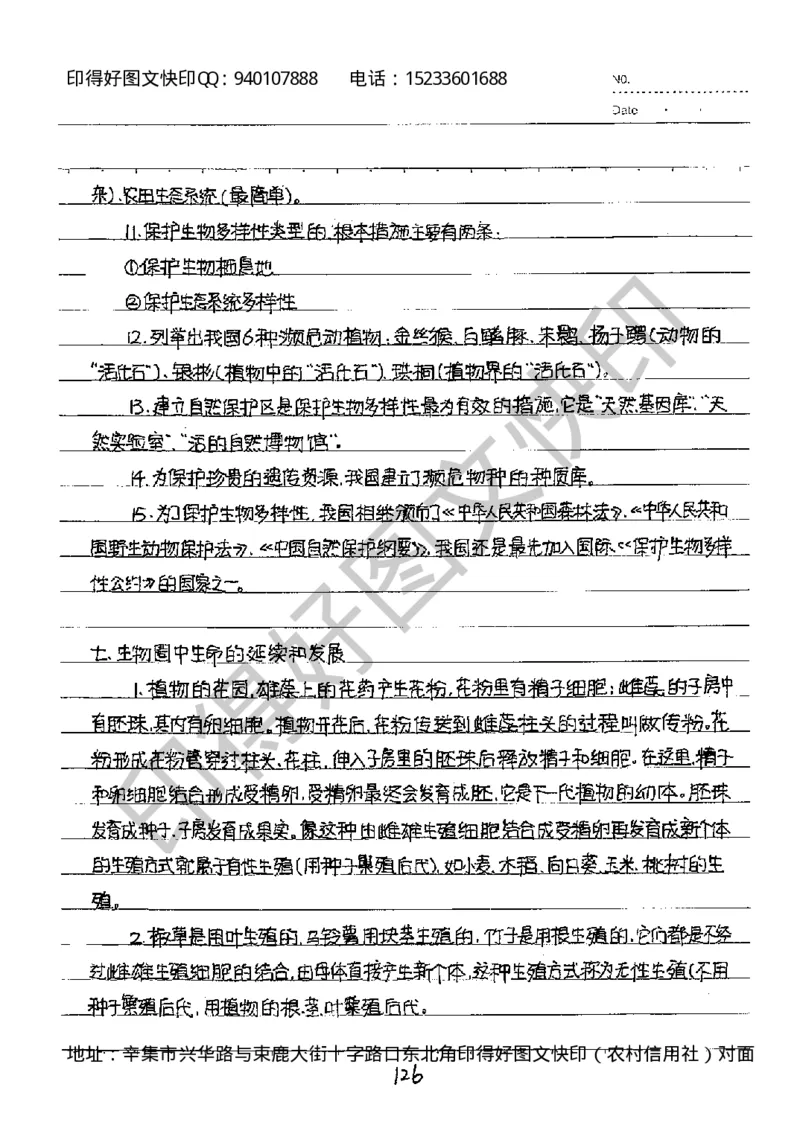 印得好图文快印QQ：940107888 电话：15233601688
No.
Date
杂)、农田生态系统(最简单)。
11.保护生物多样性类型的，根本措施主要有两条：
①保护生物栖息地
②保护生态系统多样性
12.列举出我国6种濒危动植物：金丝猴、白鳍豚、朱鹮、扬子鳄(动物的
“活化石”)、银杉(植物中的“活化石”)、珙桐(植物界的“活化石”)。
13.建立自然保护区是保护生物多样性最为有效的措施，它是“天然基因库”、“天
然实验室”、“活的自然博物馆”。
14.为保护珍贵的遗传资源，我国建立了濒危物种的种质库。
15.为了保护生物多样性，我国相继颁布了《中华人民共和国森林法》、《中华人民共和
国野生动物保护法》、《中国自然保护纲要》，我国还是最先加入国际《保护生物多样
性公约》的国家之一。
七、生物圈中生命的延续和发展
1.植物的花园，雄蕊上的花药产生花粉，花粉里有精子细胞；雌蕊的子房中
有胚珠，其内有卵细胞。植物开花后，花粉传送到雌蕊柱头的过程叫做传粉。花
粉形成花粉管穿过柱头、花柱，伸入子房里的胚珠后释放精子和细胞。在这里，精子
和卵细胞结合形成受精卵，受精卵最终会发育成胚，它是下一代植物的幼体。胚珠
发育成种子，子房发育成果实。像这种由雌雄生殖细胞结合成受精卵再发育成新个体
的生殖方式就属于有性生殖(用种子繁殖后代)，如小麦、水稻、向日葵、玉米、桃树的生
殖。
2.板草是用叶生殖的，马铃薯用块茎生殖的，竹子是用根生殖的，它们都是不经
过雌雄生殖细胞的结合，由母体直接产生新个体，这种生殖方式称为无性生殖(不用
种子繁殖后代，用植物的根、茎、叶繁殖后代。
地址：辛集市兴华路与束鹿大街十字路口东北角印得好图文快印（农村信用社）对面
126
印得好图文快印